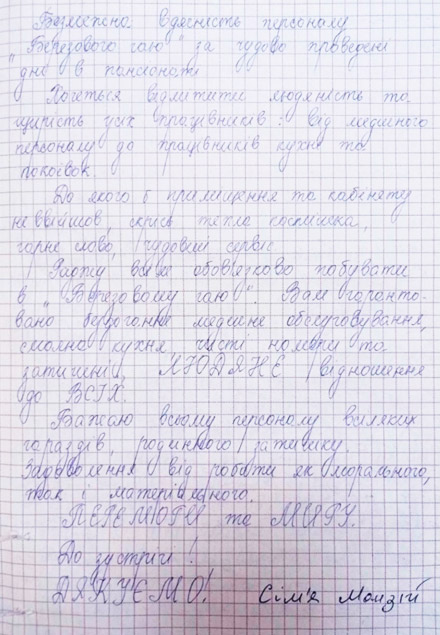 Безмежна вдячність персоналу
"Березового гаю" за чудово проведені
дні в пансіонаті
Хочеться відмітити людяність та
щирість усіх працівників: від медичного
персоналу до працівників кухні та
покоївок.
До якого б приміщення та кабінету
не ввійшов, скрізь тепла посмішка,
гарне слово, чудовий сервіс
Раджу всім обов'язково побувати
в "Березовому гаю". Вам гаранто-
вано бездоганне медичне обслуговування,
смачна кухня, чисті номери та
затишні. ЛЮДЯНЕ відношення
до ВСІХ.
Бажаю всьому персоналу всіляких
гараздів, родинного затишку.
Задоволення від роботи як морального,
так і матеріального.
ПЕРЕМОГИ та МИРУ.
До зустрічі!
ДЯКУЄМО! Сім'я